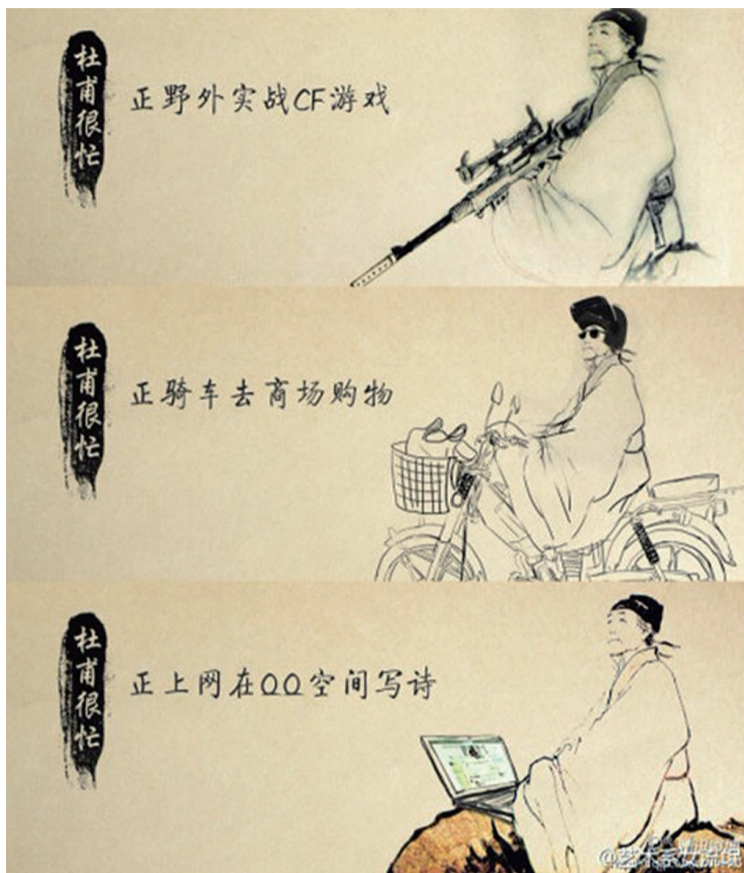 杜甫很忙
正野外实战CF游戏
杜甫很忙
正骑车去商场购物
杜甫很忙
正上网在QQ空间写诗
@艺术系女流氓